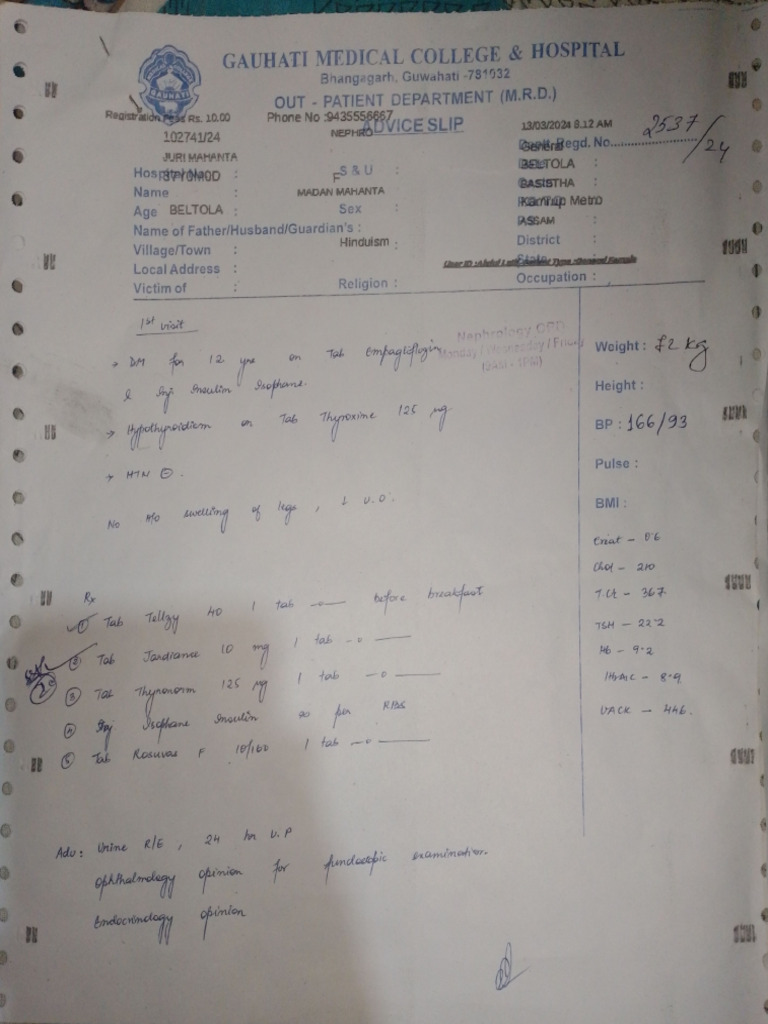 GAUHATI MEDICAL COLLEGE & HOSPITAL
Bhangagarh, Guwahati -781032
OUT - PATIENT DEPARTMENT (M.R.D.)
Registration Fees Rs. 10.00 Phone No :9435556667
ADVICE SLIP
102741/24 NEPHRO 13/03/2024 8.12 AM
General Regd. No. 2537/24
JURI MAHANTA BELTOLA
37Y0M0D F S & U :
Name : MADAN MAHANTA BASISTHA
Age : BELTOLA Sex : Kamrup Metro
Name of Father/Husband/Guardian's : ASSAM
Village/Town : Hinduism : District :
Local Address : State
Victim of : Religion : Occupation :
1st visit
Nephrology OPD
Monday / Wednesday / Friday
→ DM for 12 yrs on Tab Empagliflozin
& Inj Insulin Isophane.
→ Hypothyroidism on Tab Thyroxine 125 µg
→ HTN ⊖.
No H/o swelling of legs, ↓ U.O.
Weight : kg
Height :
BP : 166/93
Pulse :
BMI :
Creat - 0.6
Chol - 210
TGL - 367
TSH - 22.2
Hb - 9.2
HbA1C - 8.9
UACR - 446.
Rx
① Tab Tellzy 40 1 tab -o— before breakfast
② Tab Jardiance 10 mg 1 tab -o—
③ Tab Thyronorm 125 µg 1 tab -o—
④ Inj Isophane Insulin as per RBS
⑤ Tab Rosuvas F 10/160 1 tab -o—
Adv: Urine R/E, 24 hr U.P
Ophthalmology opinion for fundoscopic examination.
Endocrinology opinion